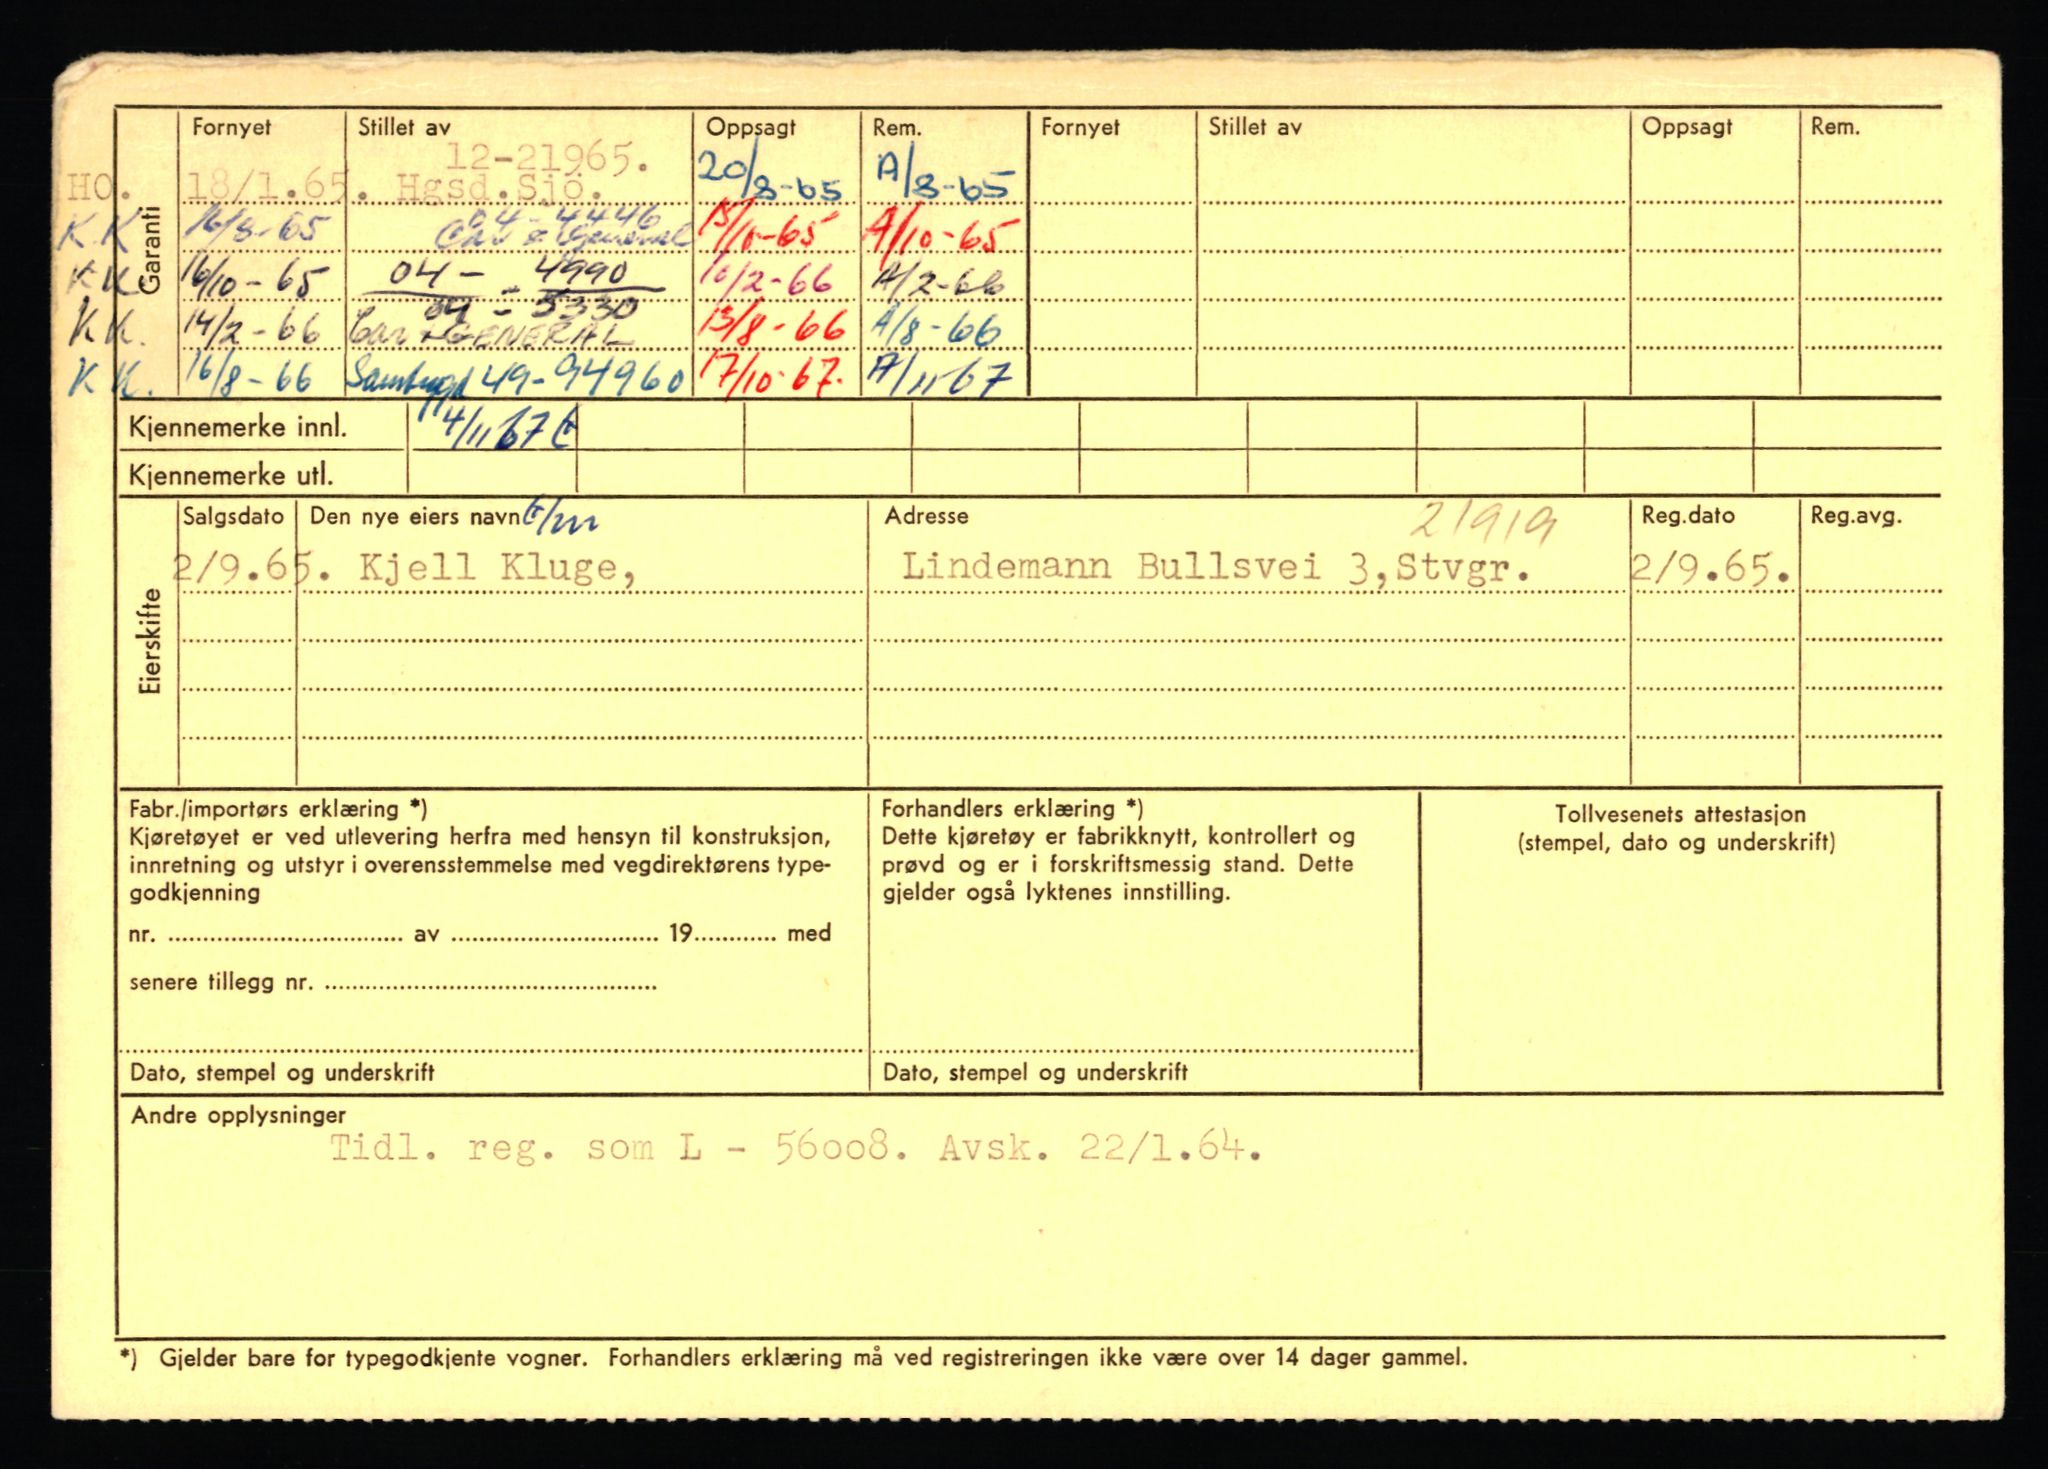 Garanti
Fornyet Stillet av Oppsagt Rem. Fornyet Stillet av Oppsagt Rem.
12-21965.
HO. 18/1.65. Hgsd.Sjö. 20/8-65 A/8-65
04-4446
K.K 16/8-65 Car & General 15/10-65 A/10-65
K K. 16/10-65 04 - 4990 10/2-66 A/2-66
04 - 5330
K K. 14/2-66 Car & GENERAL 13/8-66 A/8-66
K K. 16/8-66 Sambygd 49-94960 17/10-67. A/11-67
Kjennemerke innl. 14/11 67
Kjennemerke utl.
Eierskifte
Salgsdato Den nye eiers navn Adresse 21919 Reg.dato Reg.avg.
2/9.65. Kjell Kluge, Lindemann Bullsvei 3,Stvgr. 2/9.65.
Fabr./importørs erklæring *)
Kjøretøyet er ved utlevering herfra med hensyn til konstruksjon,
innretning og utstyr i overensstemmelse med vegdirektørens type-
godkjenning
nr. .................................. av .............................. 19............ med
senere tillegg nr. ................................................
Dato, stempel og underskrift
Forhandlers erklæring *)
Dette kjøretøy er fabrikknytt, kontrollert og
prøvd og er i forskriftsmessig stand. Dette
gjelder også lyktenes innstilling.
Dato, stempel og underskrift
Tollvesenets attestasjon
(stempel, dato og underskrift)
Andre opplysninger
Tidl. reg. som L - 56008. Avsk. 22/1.64.
*) Gjelder bare for typegodkjente vogner. Forhandlers erklæring må ved registreringen ikke være over 14 dager gammel.